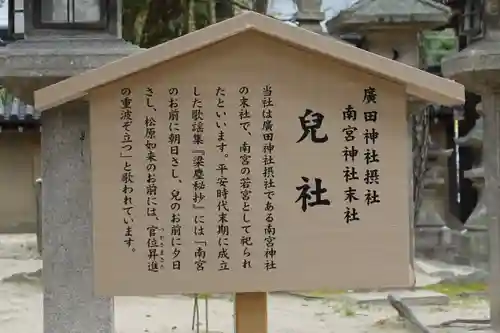 廣田神社摂社
南宮神社末社
兒社
当社は廣田神社摂社である南宮神社
の末社で、南宮の若宮として祀られ
たといいます。平安時代末期に成立
した歌謡集『梁塵秘抄』には「南宮
のお前に朝日さし、兒のお前に夕日
さし、松原如来のお前には、官位昇進
つかさまさる
の重波ぞ立つ」と歌われています。